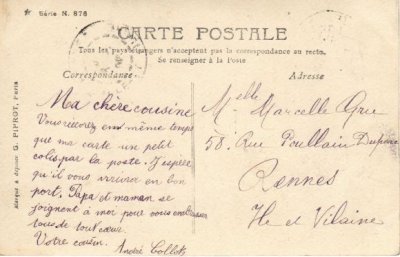 Série N. 876
CARTE POSTALE
Tous les pays étrangers n'acceptent pas la correspondance au recto.
Se renseigner à la Poste
Correspondance
Adresse
Ma chère cousine
Vous recevrez en même temps
que ma carte un petit
colis par la poste. J'espère
qu'il vous arrivera en bon
port. Papa et maman se
joignent à moi pour vous embrasser
tous de tout cœur.
Votre cousin.
André Collots
Melle Marcelle Gru
58, Rue Poullain Duparc
Rennes
Ile et Vilaine
Marque à déposer G. PIPROT, Paris